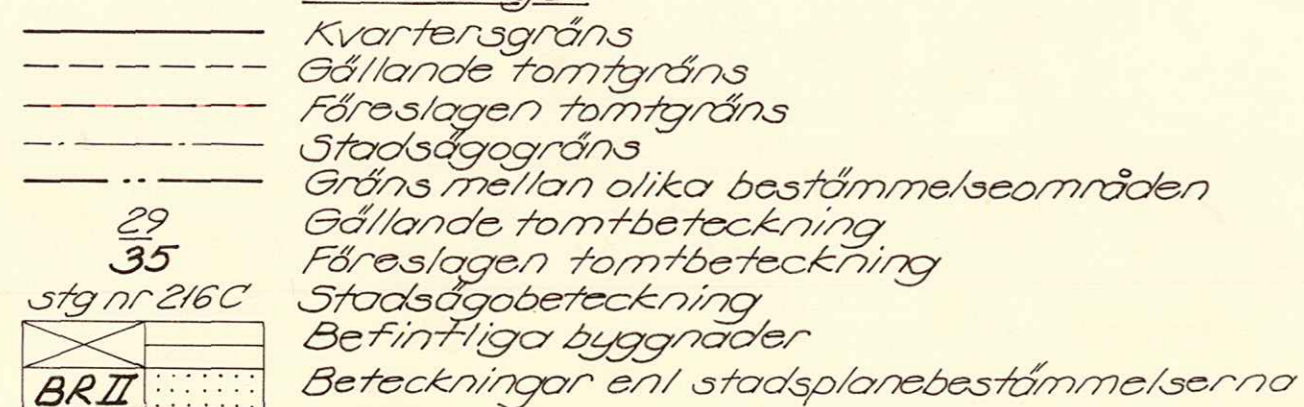 Kvartersgräns
Gällande tomtgräns
Föreslagen tomtgräns
Stadsägogräns
Gräns mellan olika bestämmelseområden
29 Gällande tomtbeteckning
35 Föreslagen tomtbeteckning
stg nr 216C Stadsägobeteckning
Befintliga byggnader
BR II Beteckningar enl stadsplanebestämmelserna